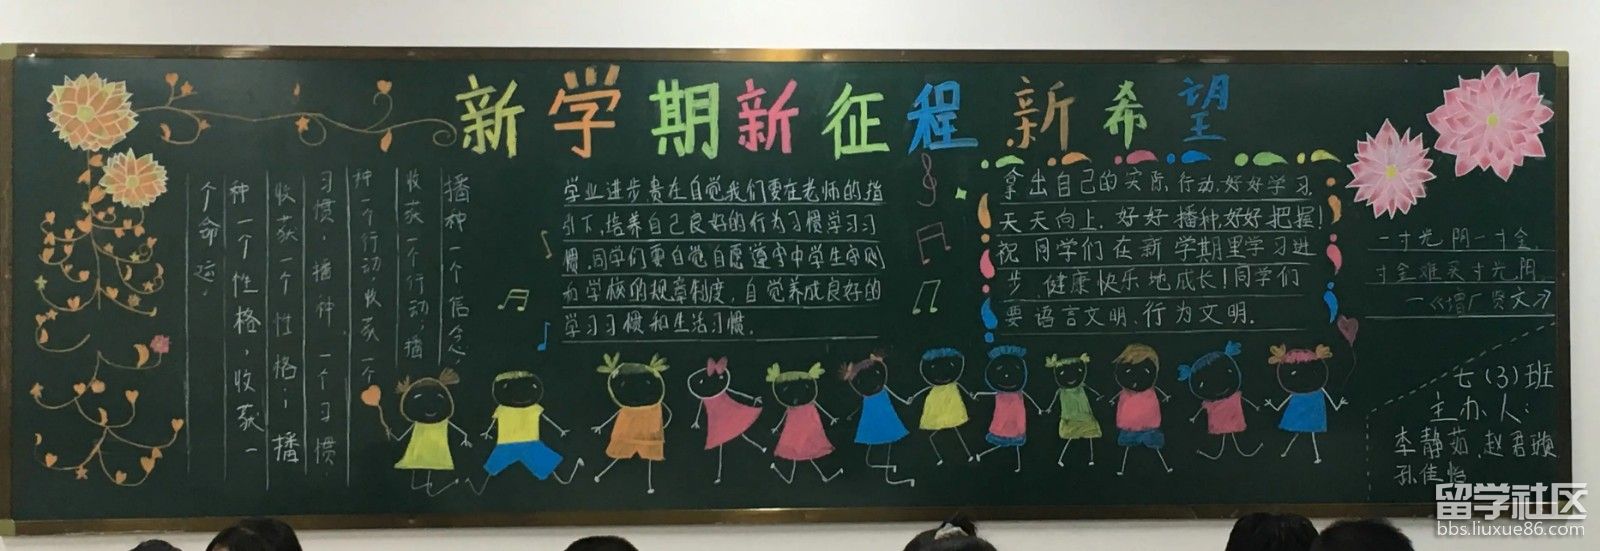 新学期新征程新希望
播种一个信念
收获一个行动；播
种一个行动收获一个
习惯，播种一个习惯
收获一个性格；播
种一个性格，收获一
个命运，
学业进步贵在自觉我们要在老师的指
引下，培养自己良好的行为习惯学习习
惯.同学们要自觉自愿遵守中学生守则
和学校的规章制度，自觉养成良好的
学习习惯和生活习惯.
拿出自己的实际行动,好好学习,
天天向上,好好播种,好好把握!
祝同学们在新学期里学习进
步、健康快乐地成长!同学们
要语言文明、行为文明.
一寸光阴一寸金,
寸金难买寸光阴.
—《增广贤文》
七(3)班
主办人:
李静茹,赵君璇
孙佳怡
留学社区
bbs.liuxue86.com